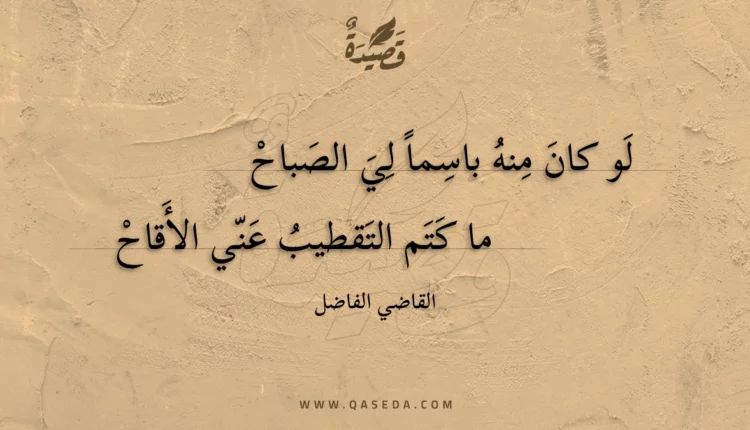 قَصِيْدَةٌ
لَو كانَ مِنهُ باسِماً لِيَ الصَباحْ
ما كَتَم التَقطيبُ عَنّي الأَقاحْ
القاضي الفاضل
WWW.QASEDA.COM